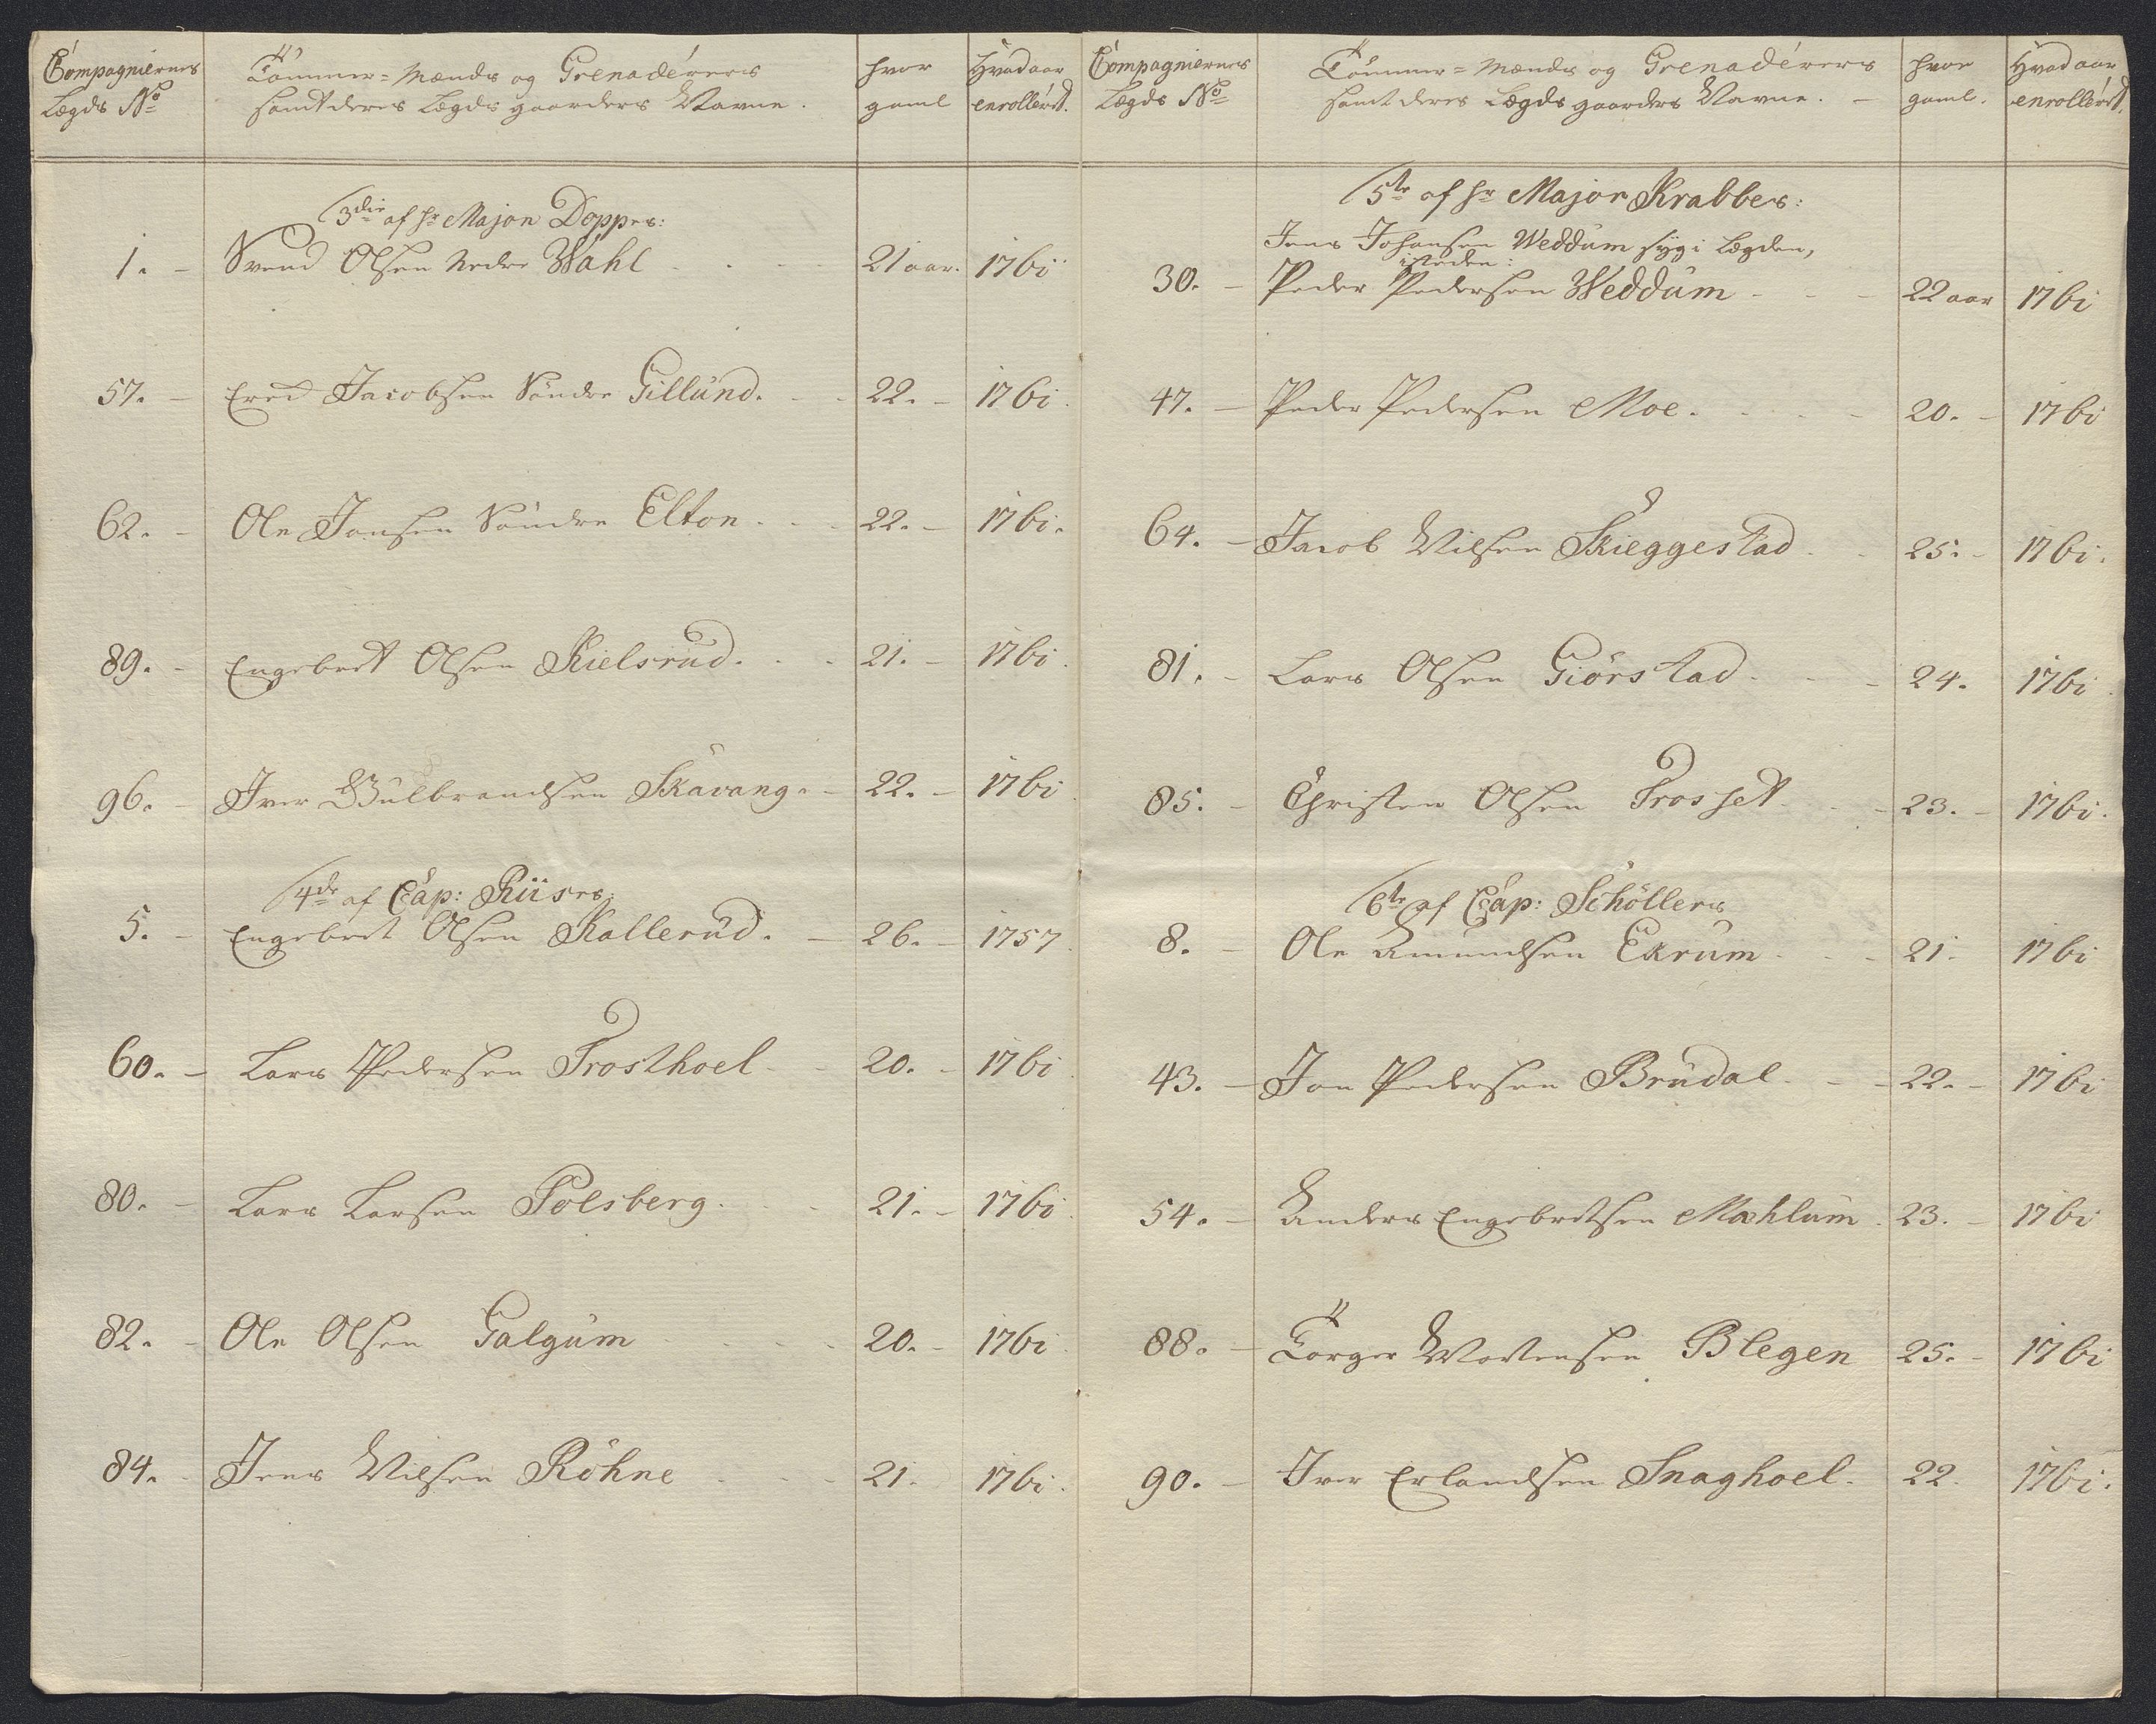 Compagniernes
Lægds No
Tömmer-Mænds og Grenadérers
samt deres Lægds gaarders Navne.
hvor
gaml
Hvad aar
enrollérd.
3die af Hr Major Doppes:
1. Svend Olsen Nedre Wahl 21 aar. 1761
57. Ered Jacobsen Söndre Gillund. 22. 1761
62. Ole Jonsen Söndre Elton. 22. 1761.
89. Engebret Olsen Kielsrud. 21. 1761
96. Iver Gulbrandsen Skavang. 22. 1761
4de af Cap: Riises:
5. Engebret Olsen Kallerud. 26. 1757
60. Lars Pedersen Trosthoel 20. 1761
80. Lars Larsen Polsberg. 21. 1761
82. Ole Olsen Galgum 20. 1761
84. Jens Nilsen Röhne 21. 1761
Compagniernes
Lægds No
Tömmer-Mænds og Grenadérers
samt deres Lægds gaarders Navne.
hvor
gaml.
Hvad aar
enrollérd.
5te af Hr Major Krabbes:
Jens Johansen Weddum syg i Lægden,
isteden:
30. Peder Pedersen Weddum 22 aar 1761
47. Peder Pedersen Moe. 20. 1761
64. Jacob Nilsen Skieggestad 25. 1761.
81. Lars Olsen Giörstad 24. 1761
85. Christen Olsen Trosset 23. 1761.
6te af Cap: Schöllers
8. Ole Amundsen Ekrum 21. 1761
43. Jon Pedersen Brudal 22. 1761
54. Anders Engebretsen Mæhlum 23. 1761
88. Torger Mortensen Blegen 25. 1761
90. Iver Erlandsen Snaghoel 22. 1761.